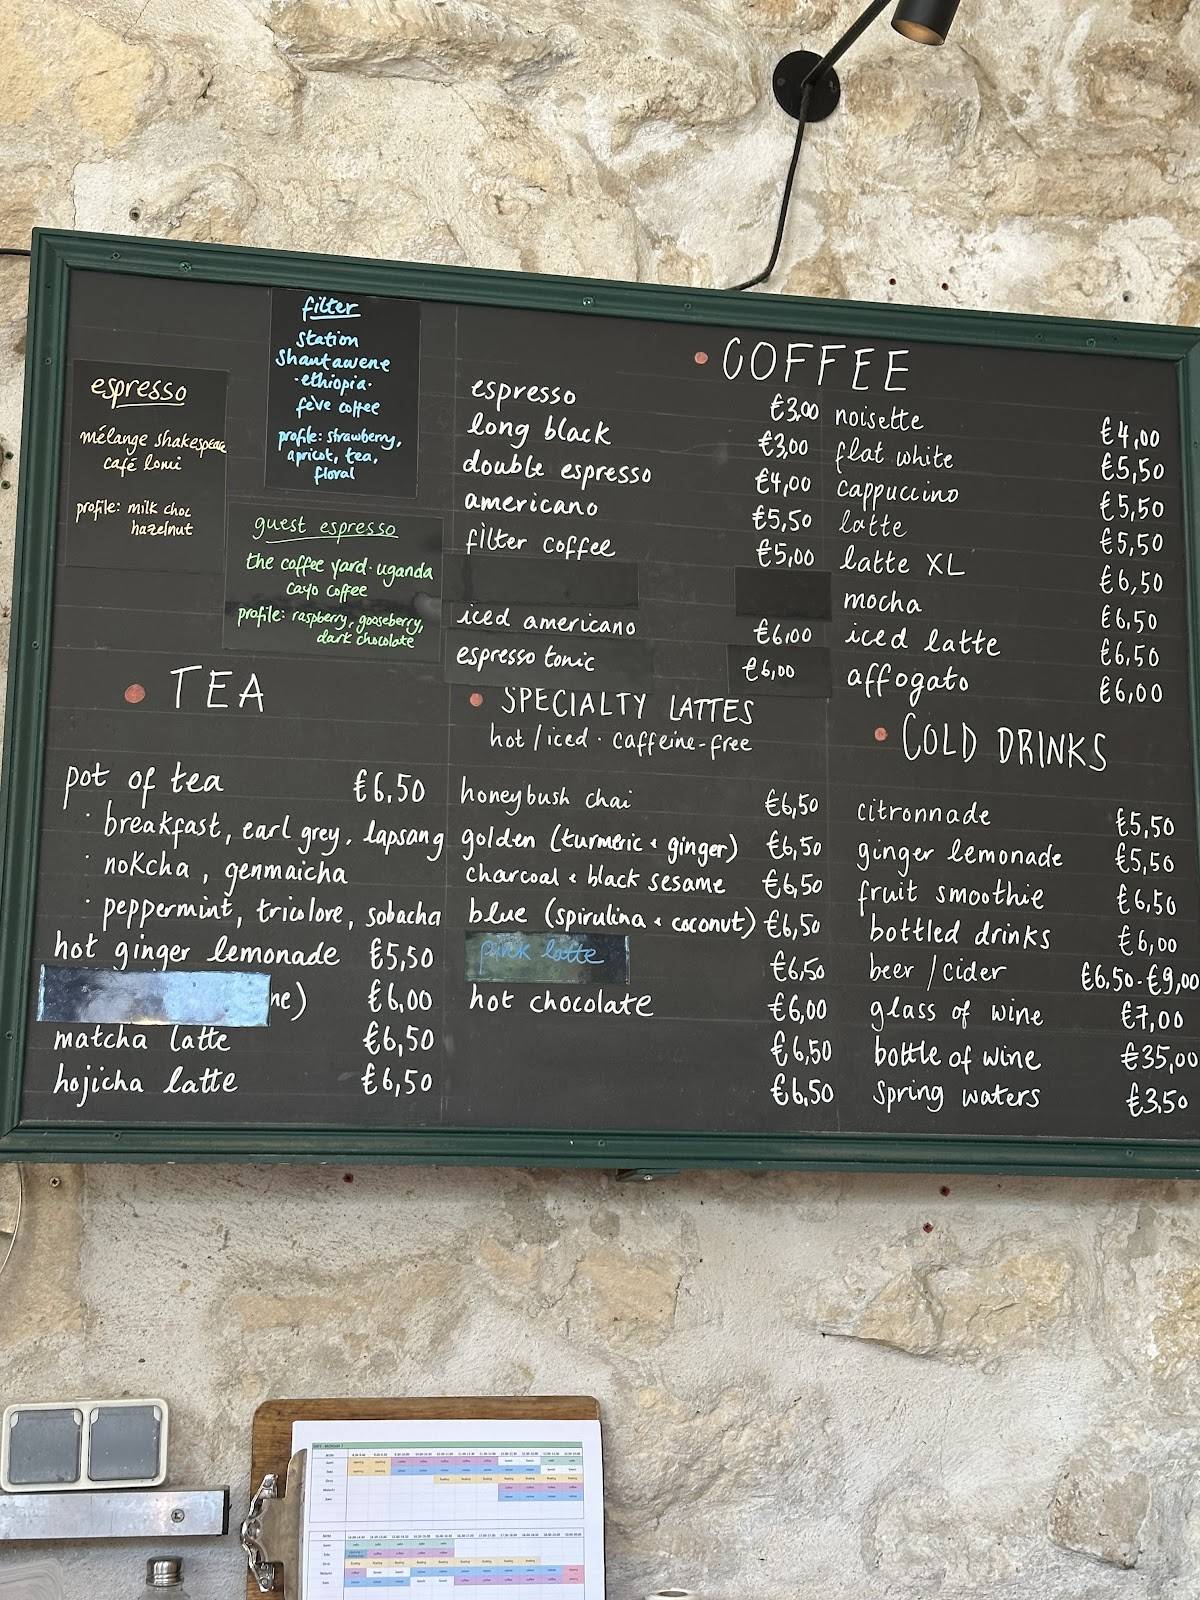 filter
station
shantawene
·ethiopia·
fève coffee
profile: strawberry,
apricot, tea,
floral
espresso
mélange shakespeare
café lomi
profile: milk choc
hazelnut
guest espresso
the coffee yard · uganda
cayo coffee
profile: raspberry, gooseberry,
dark chocolate
COFFEE
espresso €3,00
long black €3,00
double espresso €4,00
americano €5,50
filter coffee €5,00
iced americano €6,00
espresso tonic €6,00
noisette €4,00
flat white €5,50
cappuccino €5,50
latte €5,50
latte XL €6,50
mocha €6,50
iced latte €6,50
affogato €6,00
TEA
pot of tea €6,50
· breakfast, earl grey, lapsang
· nokcha, genmaicha
· peppermint, tricolore, sobacha
hot ginger lemonade €5,50
ne) €6,00
matcha latte €6,50
hojicha latte €6,50
SPECIALTY LATTES
hot / iced · caffeine-free
honeybush chai €6,50
golden (turmeric + ginger) €6,50
charcoal + black sesame €6,50
blue (spirulina + coconut) €6,50
pink latte €6,50
hot chocolate €6,00
€6,50
€6,50
COLD DRINKS
citronnade €5,50
ginger lemonade €5,50
fruit smoothie €6,50
bottled drinks €6,00
beer / cider €6,50-€9,00
glass of wine €7,00
bottle of wine €35,00
spring waters €3,50